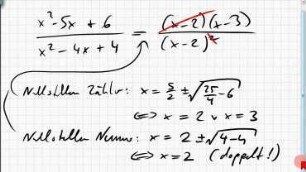 x² - 5x + 6 / x² - 4x + 4 = (x-2)(x-3) / (x-2)²
Nullstellen Zähler: x = 5/2 ± √(25/4 - 6)
⇔ x = 2 ∨ x = 3
Nullstellen Nenner: x = 2 ± √(4-4)
⇔ x = 2 (doppelt!)